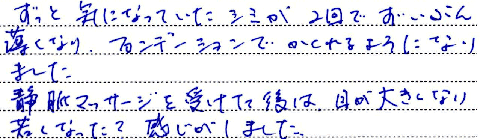 ずっと気になっていたシミが2回でずいぶん
薄くなり、ファンデーションでかくれるようになり
ました
静脈マッサージを受けた後は、目が大きくなり
若くなった？感じがしました。